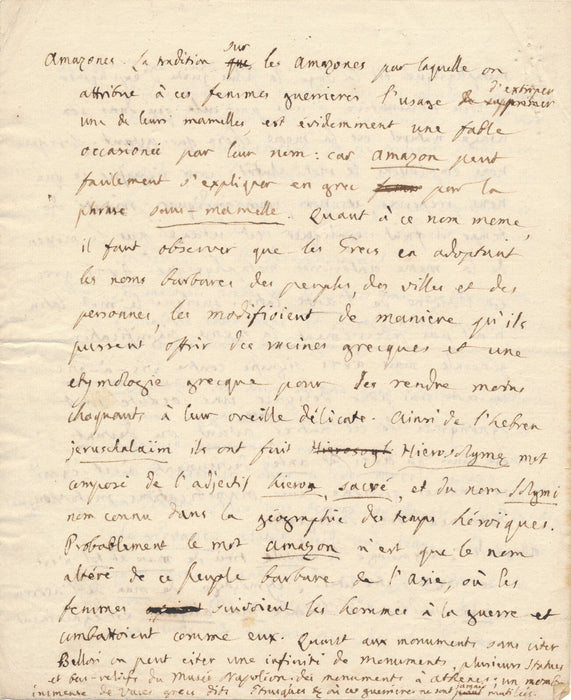 sur
Amazones. La tradition que les Amazones par laquelle on
attribue à ces femmes guerrieres l'usage de supprimer d'extirper
une de leurs mamelles, est évidemment une fable
occasionée par leur nom: car amazon peut
facilement s'expliquer en grec par la
phrase sans-mamelle. Quant à ce nom meme,
il faut observer que les Grecs en adoptant
les noms barbares des peuples, des villes et des
personnes, les modifioient de manière qu'ils
pussent offrir des racines grecques et une
etymologie grecque pour les rendre moins
choquants à leur oreille délicate. Ainsi de l'hebreu
jeruschalaïm ils ont fait Hierosoyl Hierosolyme mot
composé de l'adjectif hieron, sacré, et du nom Solymi
nom connu dans la géographie des temps héroïques.
Probablement le mot amazon n'est que le nom
altéré de ce peuple barbare de l'Asie, où les
femmes suivoient les hommes à la guerre et
combattoient comme eux. Quant aux monuments sans citer
Bellori on peut citer une infinité de monuments, plusieurs statues
et bas-reliefs du Musée Napoléon, des monuments à Athenes, un nombre
immense de vases grecs dits Etrusques & où ces guerrieres ne sont jamais mutilées